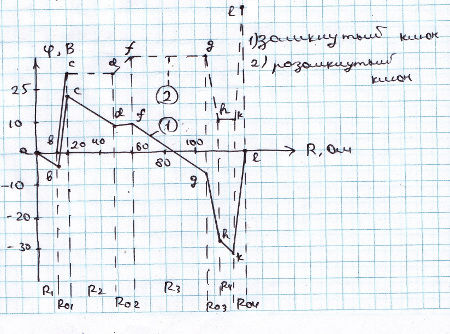 φ, В
1) замкнутый ключ
2) розомкнутый
ключ
l
c
d
f
g
25
c
h
k
2
10
d
f
1
a
b
20
40
60
80
100
l
R, Ом
b
-10
g
-20
h
-30
k
R1
R01
R2
R02
R3
R03
R4
R04